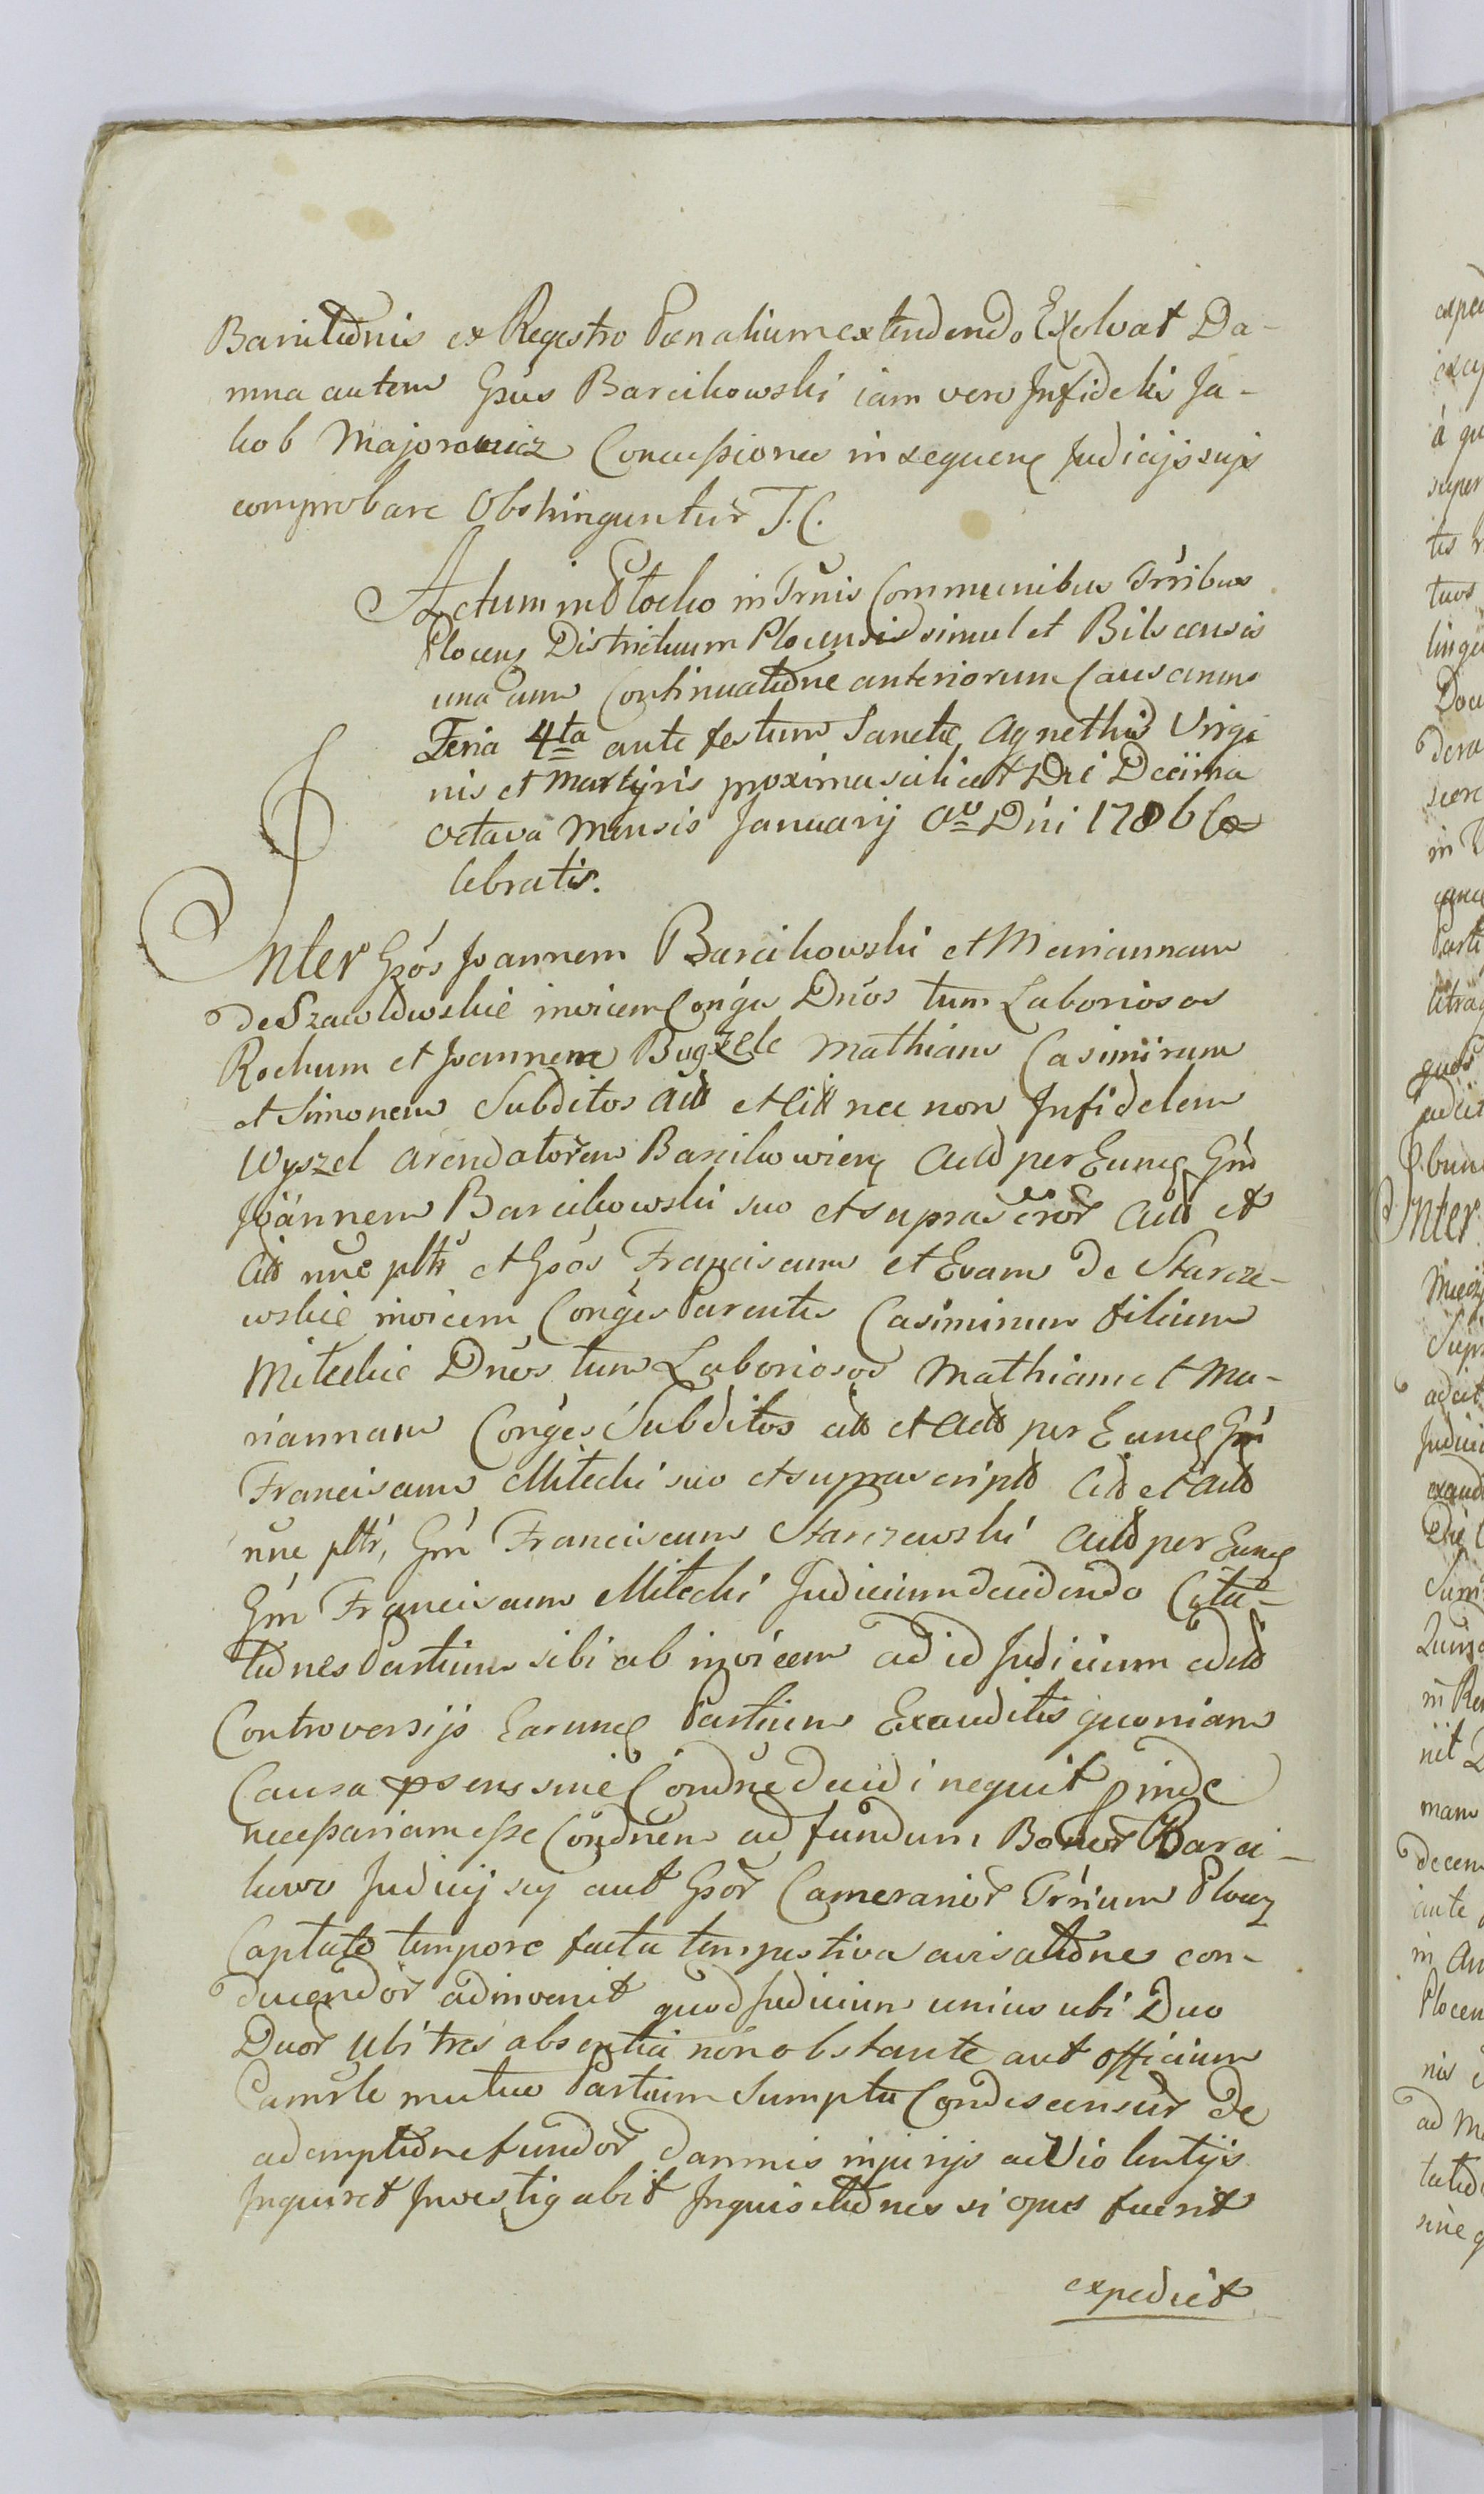 Banitiōnis ex Regestro Pœnalium extendendo Exolvat Da-
mna autem Gsus Barcikowski iam vero Infidelis Ja-
kob Majorowicz Concussiones in sequen Judicijs sujs
comprobare Obstringuntur T. C.
Actum in Plocko in Trnis Communibus Trribus
Plocens Districtuum Plocensis simul et Bilscensis
una cum Continuatiōne anteriorum Causarum
Feria 4ta ante festum Sanctæ Agnethis Virgi
nis et Martÿris proxima scilicet Die Decima
octava Mensis Januarij Ao Dni 1786 Ce
lebratis.
Inter Gsos Joannem Barcikowski et Mariannam
de Szawłowskie invicem Conges Dnos tum Laboriosos
Rochum et Joannem Bugzele Mathiam Casimirum
et Simonem Subditos Act et Citt nec non Infidelem
Wyszel arendatorem Barcikowien Act per Eunq Gm
Joannem Barcikowski suo et suprascror Act et
Citt nnē pltr et Gsos Franciscum et Evam de Starcze-
wskie invicem Conges Parentes Casimirum filium
Miteckie Dnos tum Laboriosos Mathiam et Ma-
riannam Conges Subditos citt et Act per Eunq Gm
Franciscum Mitecki suo et suprascript Citt et Act
nnē pltr, Gm Franciscum Starczewski Act per Eunq
Gm Franciscum Mitecki Judicium decidendo Cita-
tiōnes Partium sibi ab invicem ad id Judicium edit
Controversijs Earunq Partium Exauditis quoniam
Causa psens sine Condne decidi nequit pinde
necessariam esse Condnem ad fundum Bonor Barci-
kowo Judicij sui aut Gsor Camerarior Trrium Plocen
Captato tempore facta tempestiva avisatiōne con-
ducendor adinvenit quod Judicium unius ubi Duo
Duor ubi tres absentia non obstante aut officium
Camrle mutuo Partium Sumptu Condescensur De
ademptiōne fundor damnis injurijs ac Violentijs
Inquiret Investigabit Inquisitiōnes si opus fuerit
expediet